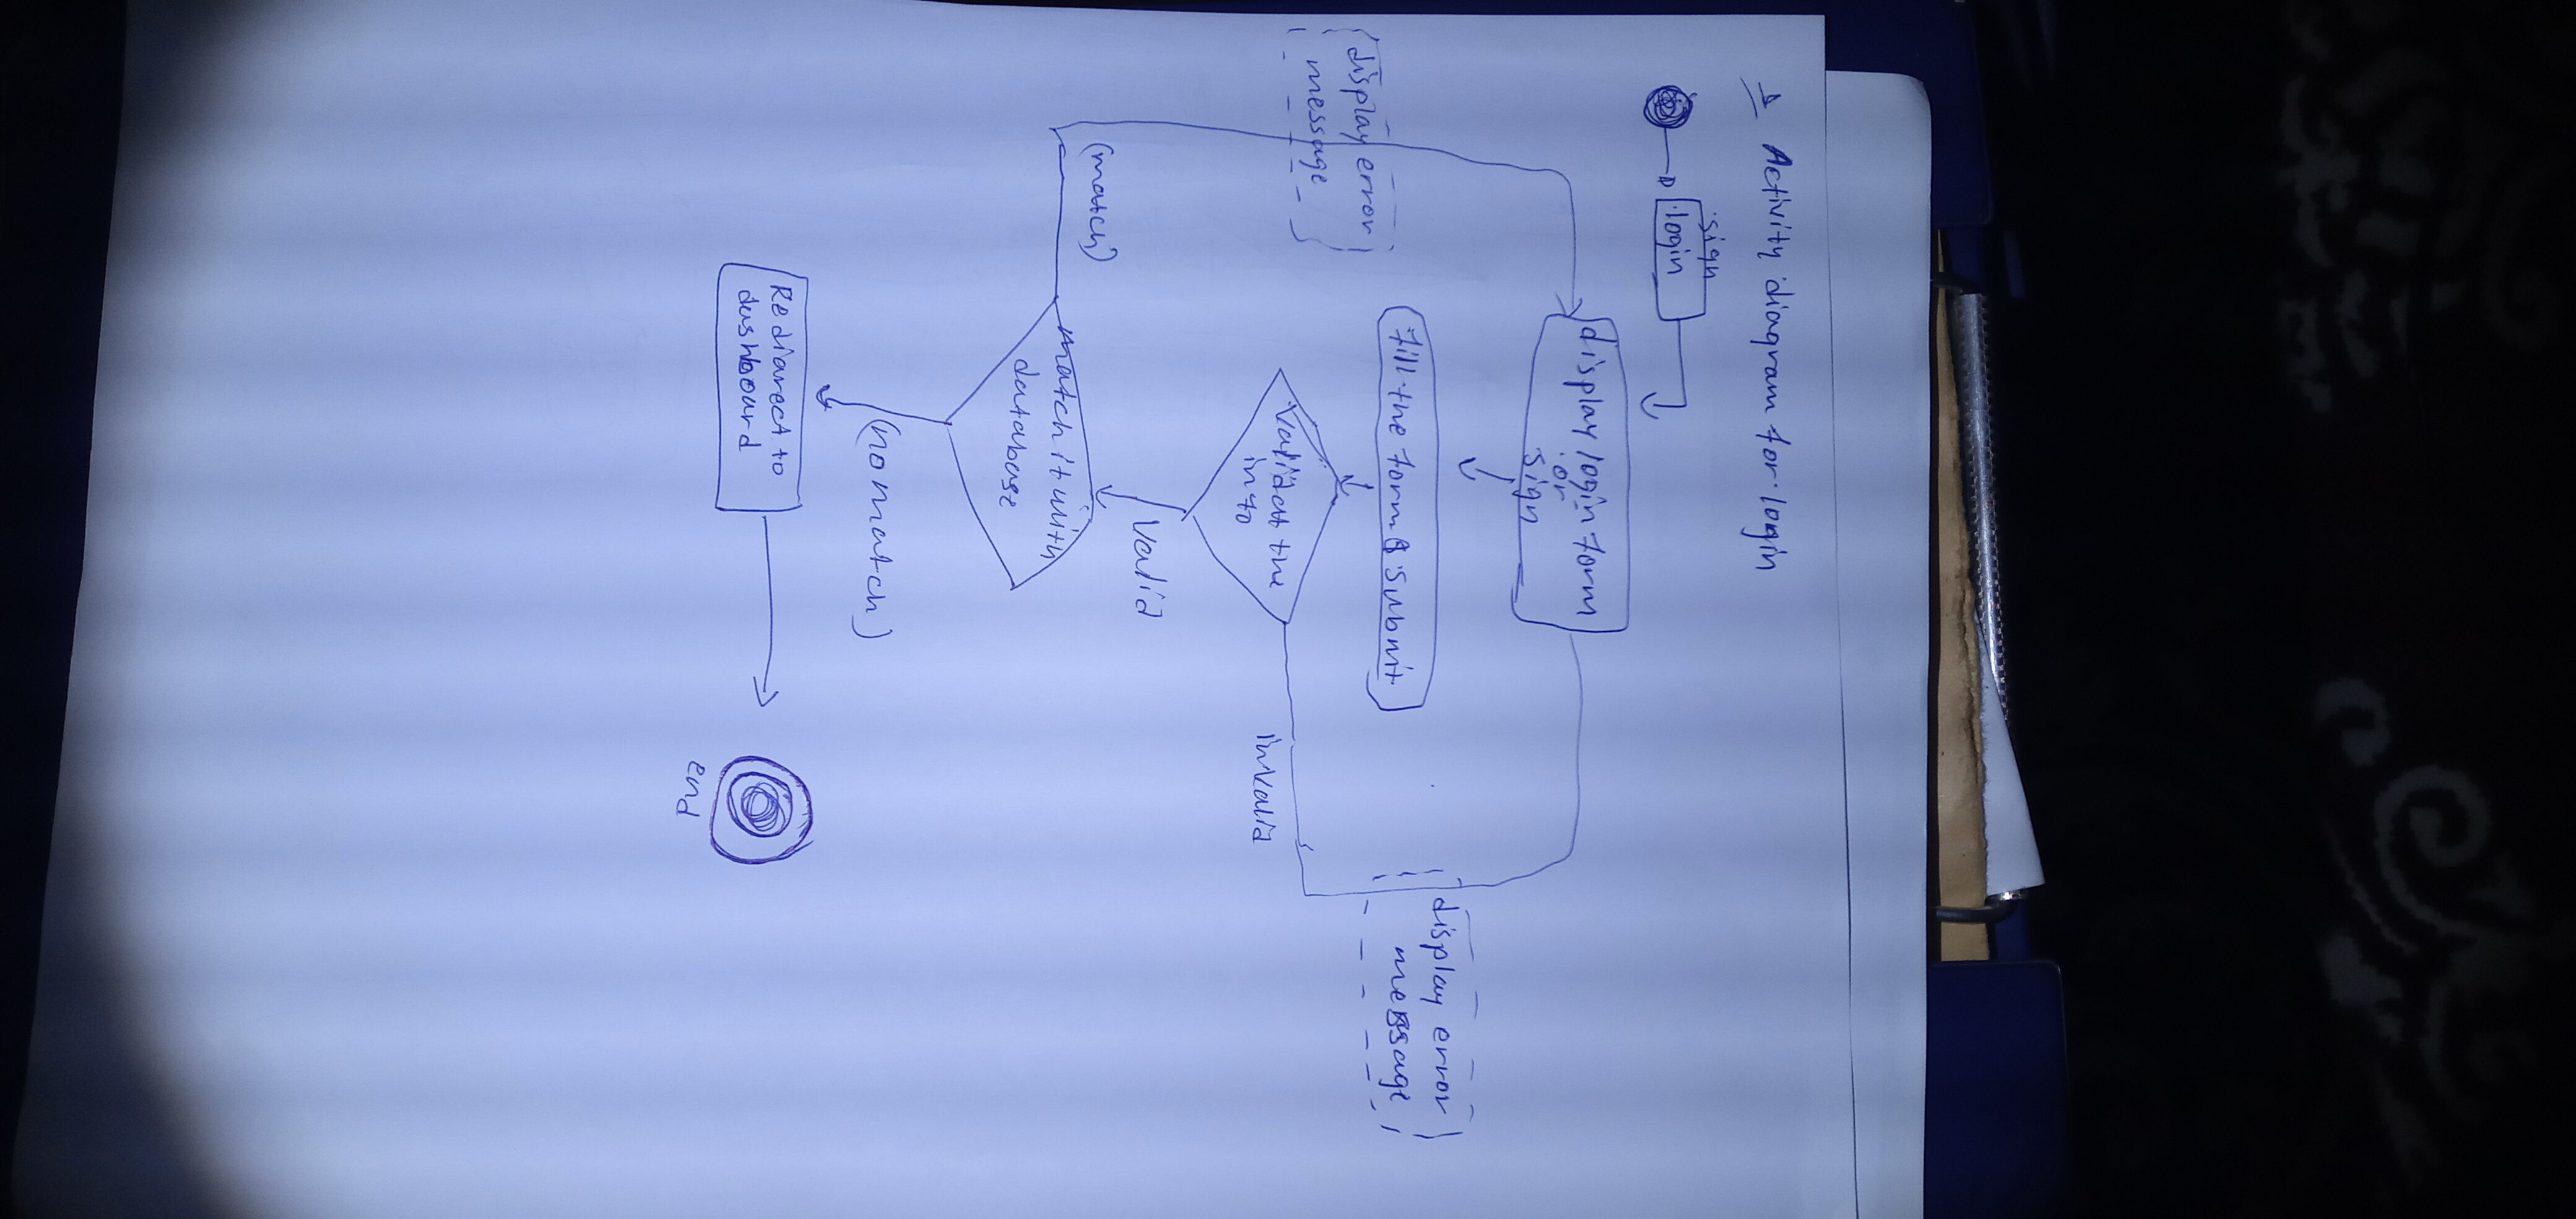 Activity diagram for login
sign
login
display login form
or
sign
fill the form & submit
display error
message
display error
message
validat the
info
invalid
valid
(match)
match it with
database
(no match)
Rediarect to
dashboard
end